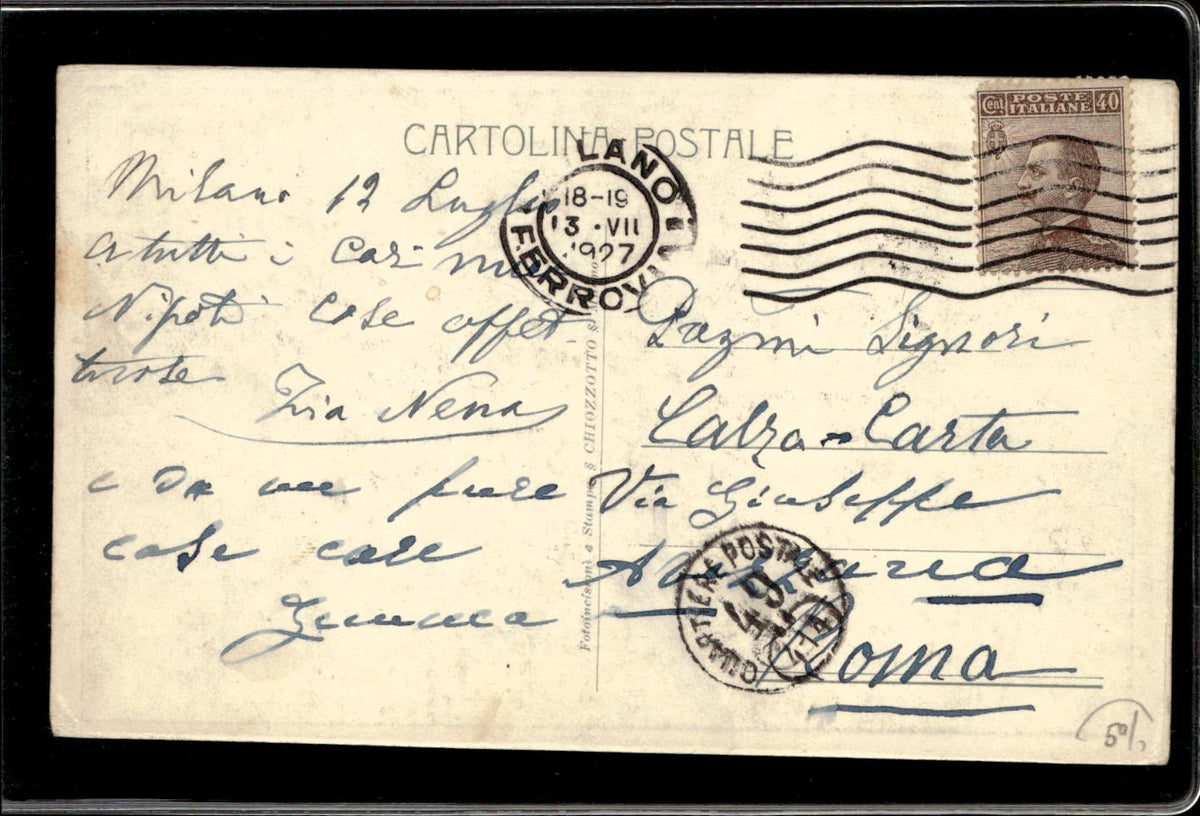 CARTOLINA POSTALE
Cent POSTE ITALIANE 40
LANO
18-19
13 · VII
1927
FERROVIA
Milano 12 Luglio
a tutti i cari miei
Nipoti cose affet-
tuose
Zia Nena
e da me pure
cose care
Gemma
Fotoincisioni e Stampa S CHIOZZOTTO
Signori
Calza-Carta
Via Giuseppe
Roma
QUARTIERE POSTALE
5%